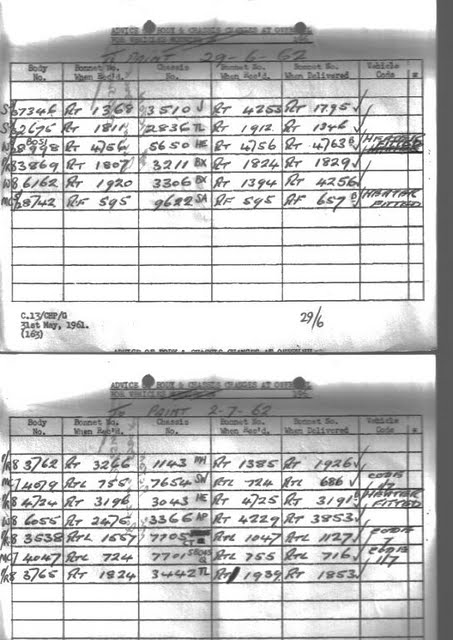 ADVICE OF BODY & CHASSIS CHANGES AT OVERHAUL
FOR VEHICLES
To PAINT 29-6-62
Body No. Bonnet No. When Rec'd. Chassis No. Bonnet No. When Rec'd. Bonnet No. When Delivered Vehicle Code *
7346 RT 1368 3510 J RT 4253 RT 1795 ✓
2676 RT 1811 2836 TL RT 1912 RT 1346 ✓
W 8998 RT 4756 5650 HE RT 4756 RT 4763 B ✓ HEATER FITTED
P/R 8 3869 RT 1807 3211 BX RT 1824 RT 1829 ✓
W 8 6162 RT 1920 3306 BX RT 1394 RT 4256 ✓
MC 8742 RF 595 9622 SA RF 595 RF 657 B ✓ HEATER FITTED
C.13/CHP/G
31st May, 1961.
(163)
29/6
ADVICE OF BODY & CHASSIS CHANGES AT OVERHAUL
ADVICE OF BODY & CHASSIS CHANGES AT OVERHAUL
FOR VEHICLES
To PAINT 2-7-62
Body No. Bonnet No. When Rec'd. Chassis No. Bonnet No. When Rec'd. Bonnet No. When Delivered Vehicle Code *
P/R 8 3762 RT 3266 1143 MH RT 1385 RT 1926 ✓
MC 7 4079 RTL 755 7654 SW RTL 724 RTL 686 ✓ CODE 17
P/R 8 4724 RT 3196 3043 HE RT 4725 RT 3191 B ✓ HEATER FITTED
W 8 6055 RT 2476 3366 AP RT 4229 RT 3853 ✓
P/R 8 3538 RTL 1557 7705 RTL 1047 RTL 1127 ✓ CODE 7
MC 7 4047 RTL 724 7701 Q RTL 755 RTL 716 ✓ CODE 17
P/R 8 3765 RT 1824 3442 TL RT 1939 RT 1853 ✓